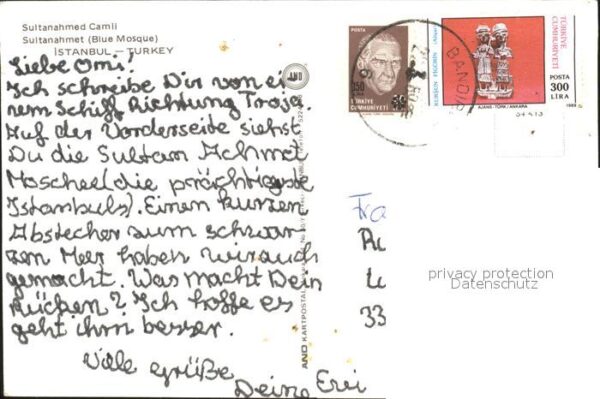 Sultanahmed Camii
Sultanahmet (Blue Mosque)
İSTANBUL – TURKEY
Liebe Omi!
Ich schreibe Dir von ei
nem Schiff Richtung Troja.
Auf der Vorderseite siehst
Du die Sultan Achmat
Moschee (die prächtigste
Istanbuls). Einen kurzen
Abstecher zum schwar
zen Meer haben wir auch
gemacht. Was macht Dein
Rücken? Ich hoffe es
geht ihm besser.
Viele Grüße
Deine
AND
AND KARTPOSTAL
POSTA
50
TÜRKİYE
CUMHURİYETİ
TÜRKİYE
CUMHURİYETİ
POSTA
300
LİRA
AJANS-TÜRK / ANKARA
BANDIR
Fra
33
privacy protection
Datenschutz